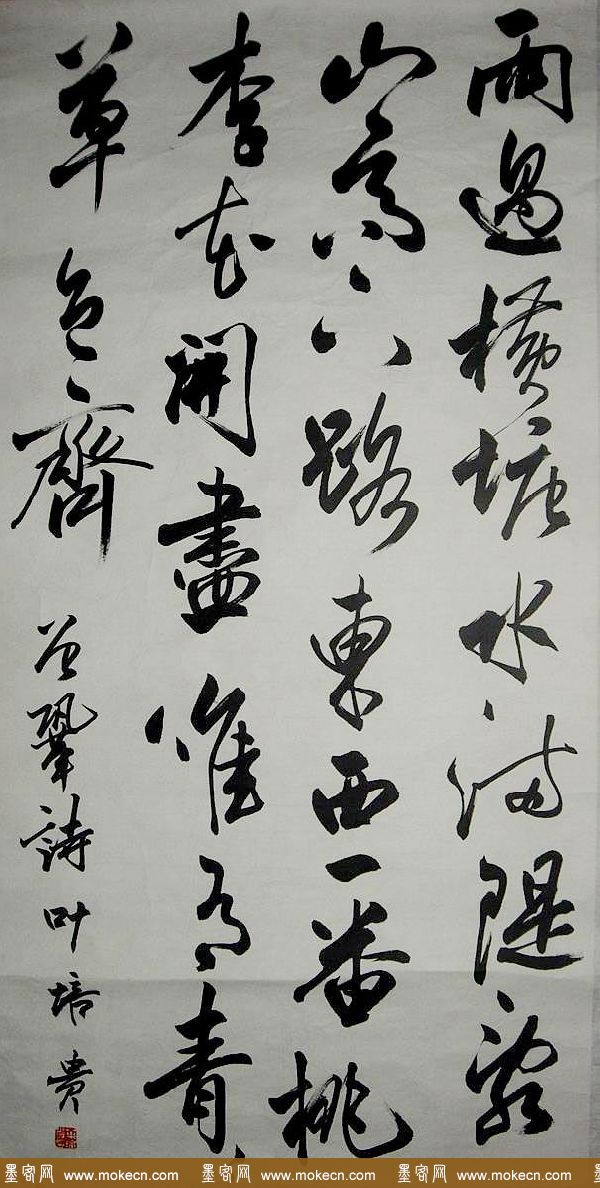 雨過橫塘水滿隄亂
山高下路東西一番桃
李花開盡惟有青々
草色齊
曾鞏詩 叶培貴
墨客网 www.mokecn.com 墨客网 www.mokecn.com 墨客网 www.mokecn.com 墨客